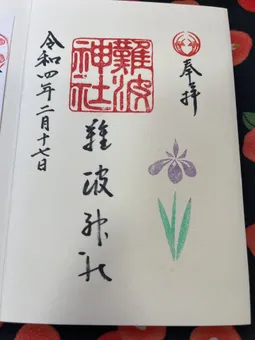 奉拝
難波
神社
難波神社
令和四年二月十七日